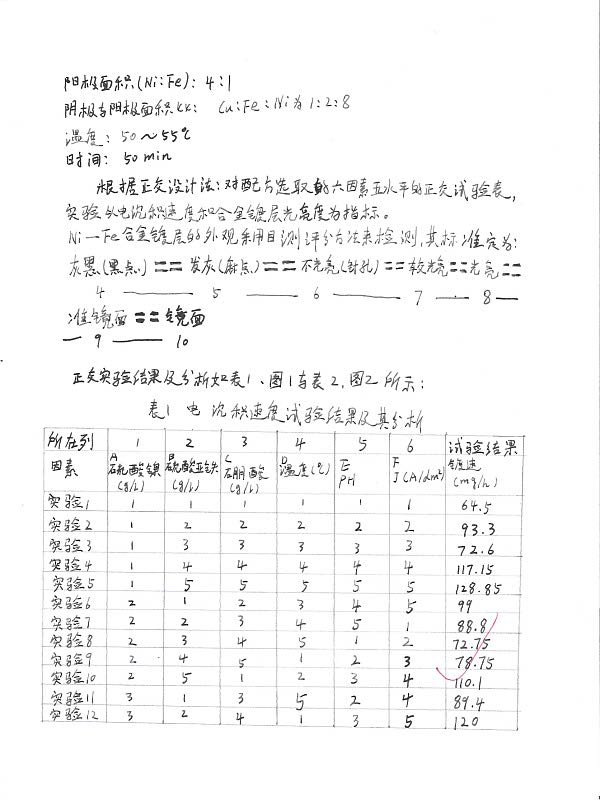 阳极面积(Ni:Fe): 4:1
阴极与阳极面积比: Cu:Fe:Ni为1:2:8
温度: 50～55℃
时间: 50min
根据正交设计法:对配方选取的六因素五水平的正交试验表,
实验以电沉积速度和合金镀层光亮度为指标。
Ni—Fe合金镀层的外观采用目测评分方法来检测,其标准定为:
灰黑(黑点)==发灰(麻点)==不光亮(针孔)==较光亮==光亮==
4 —— 5 —— 6 —— 7 — 8 —
准镜面==镜面
— 9 —— 10
正交实验结果及分析如表1、图1与表2,图2所示:
表1 电沉积速度试验结果及其分析
所在列 1 2 3 4 5 6 试验结果
因素 A硫酸镍(g/L) B硫酸亚铁(g/L) C硼酸(g/L) D温度(℃) E PH F J(A/dm²) 镀速(mg/h)
实验1 1 1 1 1 1 1 64.5
实验2 1 2 2 2 2 2 93.3
实验3 1 3 3 3 3 3 72.6
实验4 1 4 4 4 4 4 117.15
实验5 1 5 5 5 5 5 128.85
实验6 2 1 2 3 4 5 99
实验7 2 2 3 4 5 1 88.8
实验8 2 3 4 5 1 2 72.75
实验9 2 4 5 1 2 3 78.75
实验10 2 5 1 2 3 4 110.1
实验11 3 1 3 5 2 4 89.4
实验12 3 2 4 1 3 5 120